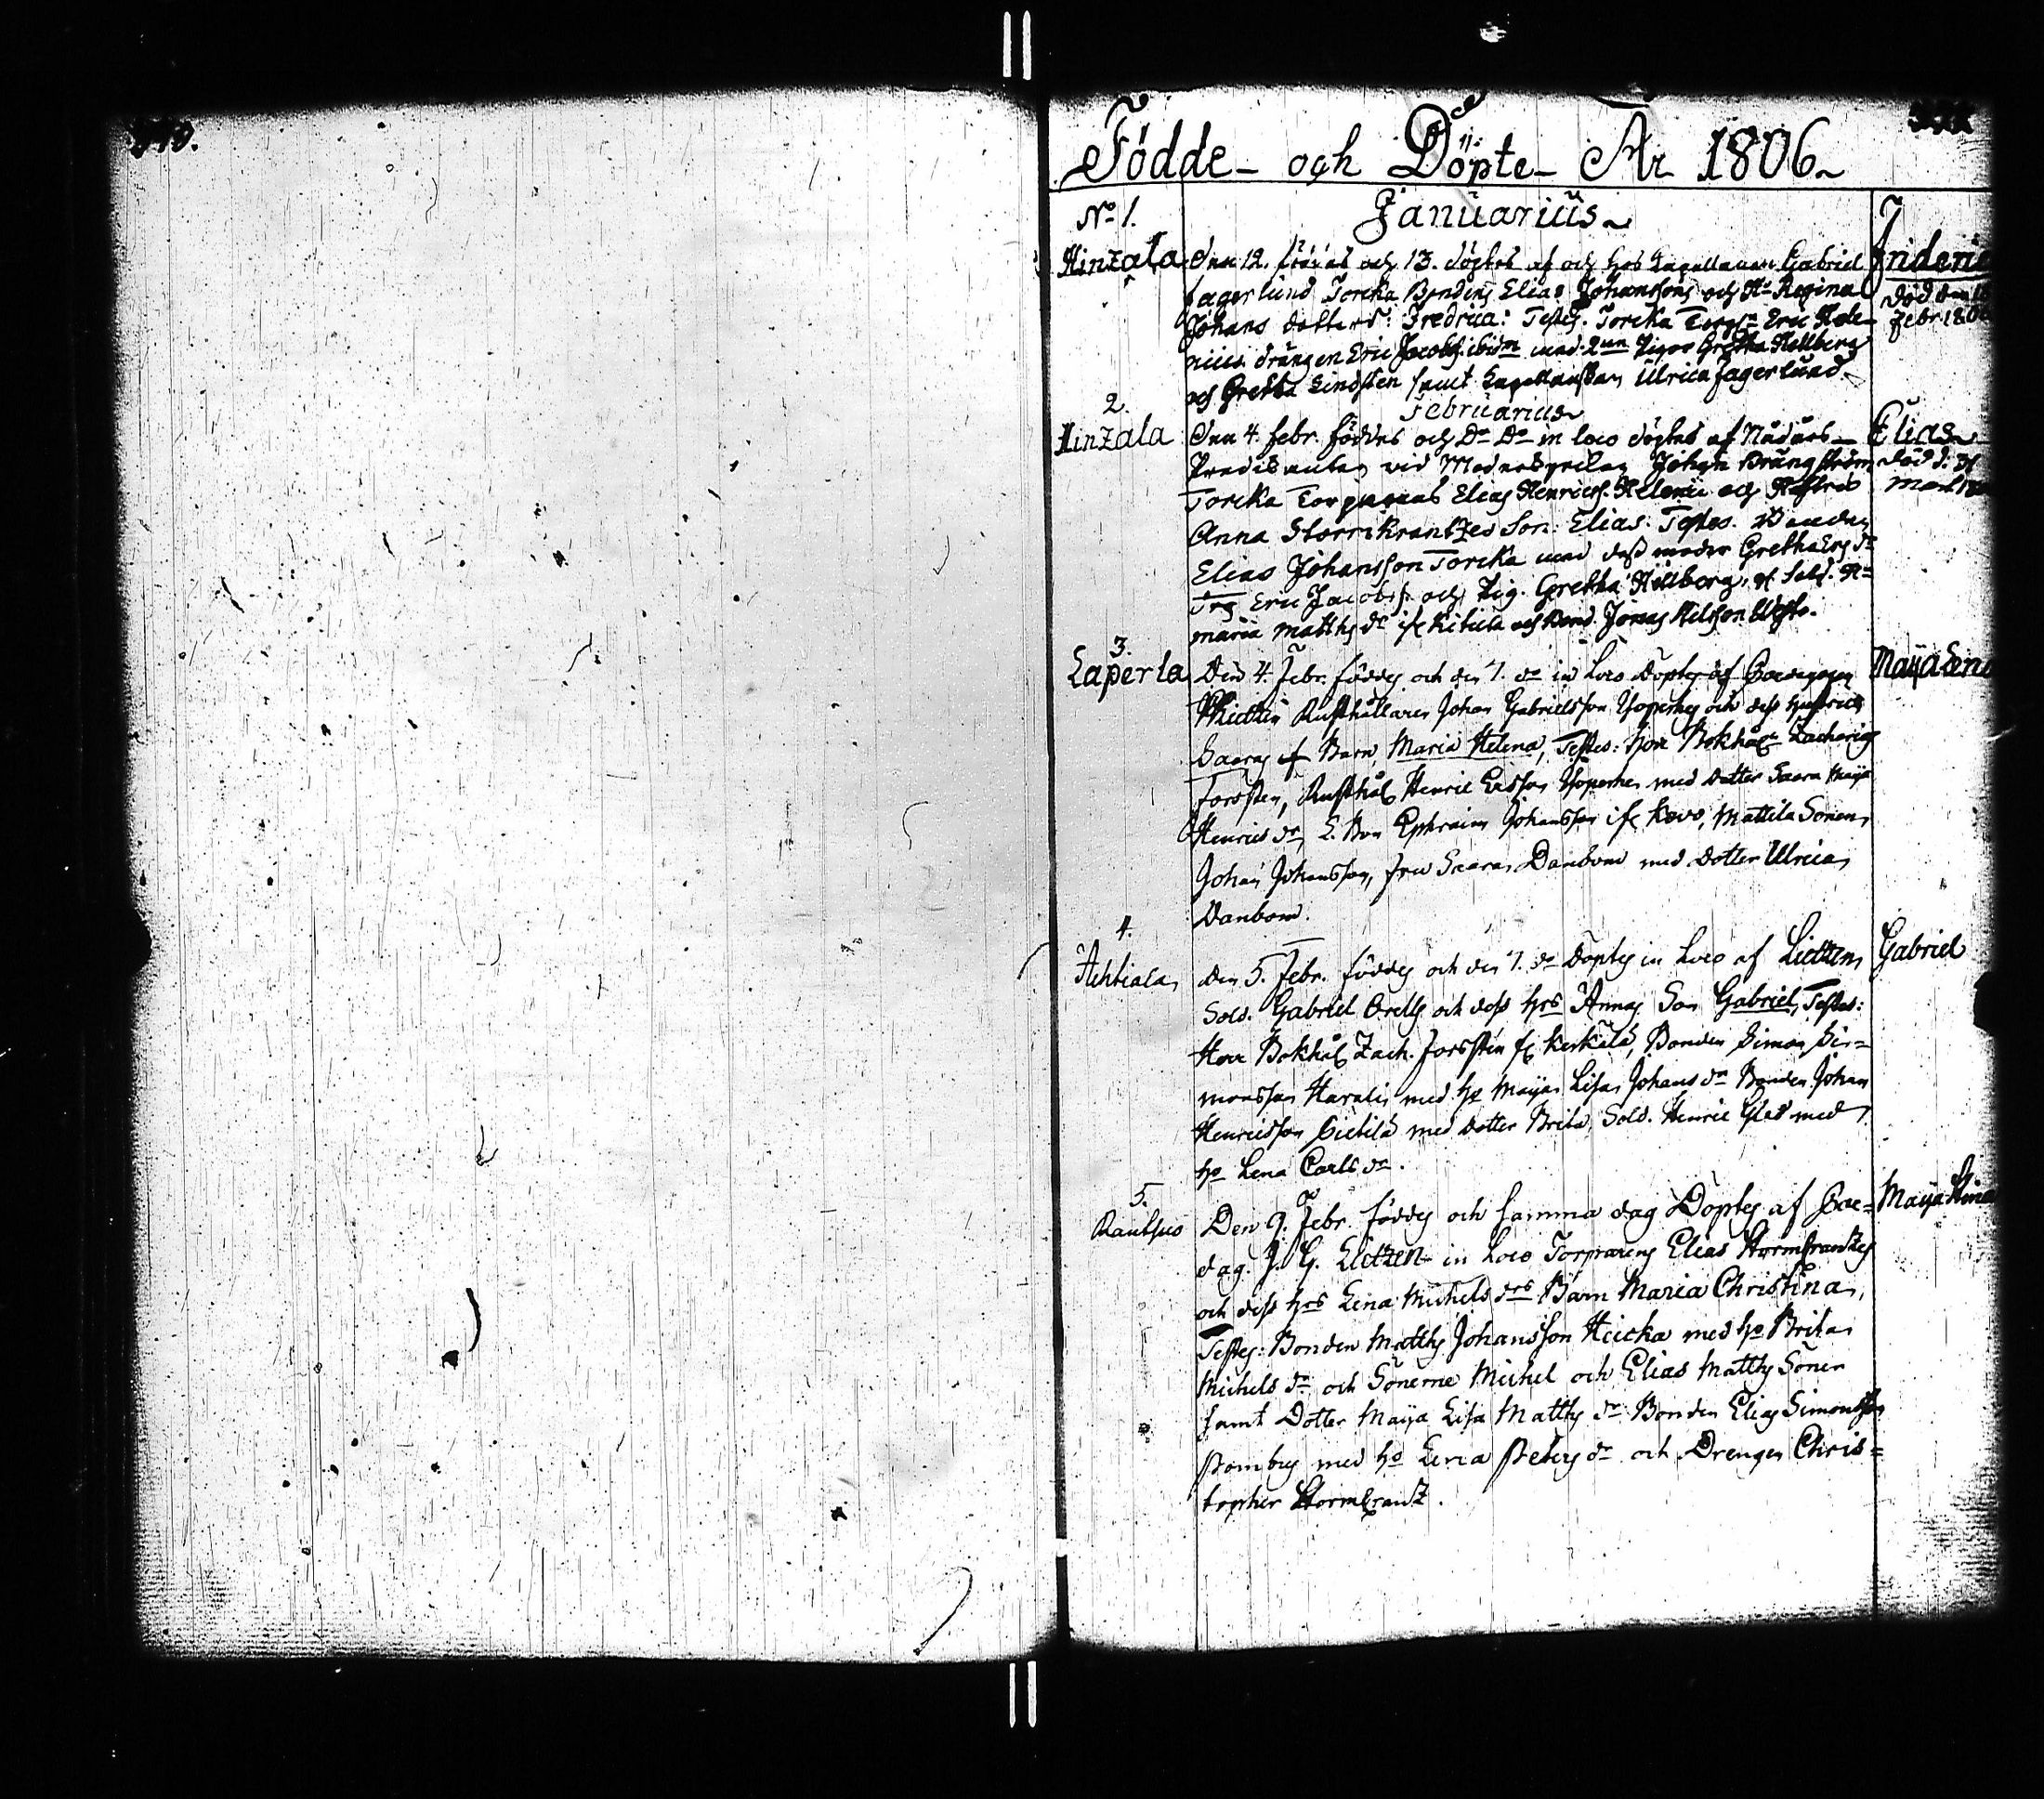 Födde - och Döpte - År 1806
Januarius
No 1.
Hinzala
Den 12. föddes och 13. döptes af och hos Capellanen Gabriel
Fagerlund Torcka Bondens Elias Johanssons och Ho Regina
Johans dotters: Fredrica: Testes. Torcka Eric Hele-
nius drängen Eric Jacobs. ibidm med Pigor Gretha Hellberg
och Gretha Lindsten samt Capellanskan Ulrica Fagerlund.
Frideric
död den
Febr 180
Februarius
2.
Hinzala
Den 4. Febr. föddes och Do Do in loco döptes af Nådårs-
Predikanten vid Johan Brangström
Torcka Torparens Elias Henrics. Helenii och Hustros
Anna Storrikrantzes Son: Elias: Testes. Bonden
Elias Johansson Torcka med dess moder Gretha Ers dr
Eric Jacobss. och Pig. Gretha Hellberg, Sold. Ho
Maria Matths dr och Bond. Jonas Nilsson
Elias
död d. 31
Mart 18
3.
Laperla
Den 4. Febr. föddes och den 7. do in Loco Döptes af Paedagogen
Lietzen Rusthållaren Johan Gabrielsson och dess hustrus
Saaras Barn, Maria Helena, Testes: Herr Bokhål. Zacharias
Forssten, Rusthål. Henric Ersson med dotter Saara Maija
Henrics dr, Ephraim Johansson Mattila Sonen
Johan Johansson, fru Saara Danbom med dotter Ulrica
Danbom.
Maija Lena
4.
Ahtiala
den 5. Febr. föddes och den 7. do Döptes in Loco af Lietzen
Sold. Gabriel Orells och dess hrs Annas Son Gabriel, Testes:
Herr Bokhål. Zach. Forsstén fr. Keskala, Bonden Simon Si-
monsson Harali med ho Maija Lisa Johans dr Bonden Johan
Henricsson Pietilä med dotter Brita, Sold. Henric Glad med
ho Lena Carls dr.
Gabriel
5.
Rautsuo
Den 9. Febr. föddes och samma dag Döptes af Pae-
dag. J. G. Lietzen in Loco Torparens Elias Stormkrantzes
och dess hrs Lena Michels drs Barn Maria Christina,
Testes: Bonden Matths Johansson Heicka med ho Brita
Michels dr och Sönerne Michel och Elias Matths Söner
samt Dotter Maija Lisa Matths dr Bonden Elias Simonsson
med ho Lena Peters dr och Drengen Chris-
topher Stormkrantz.
Maija Stina